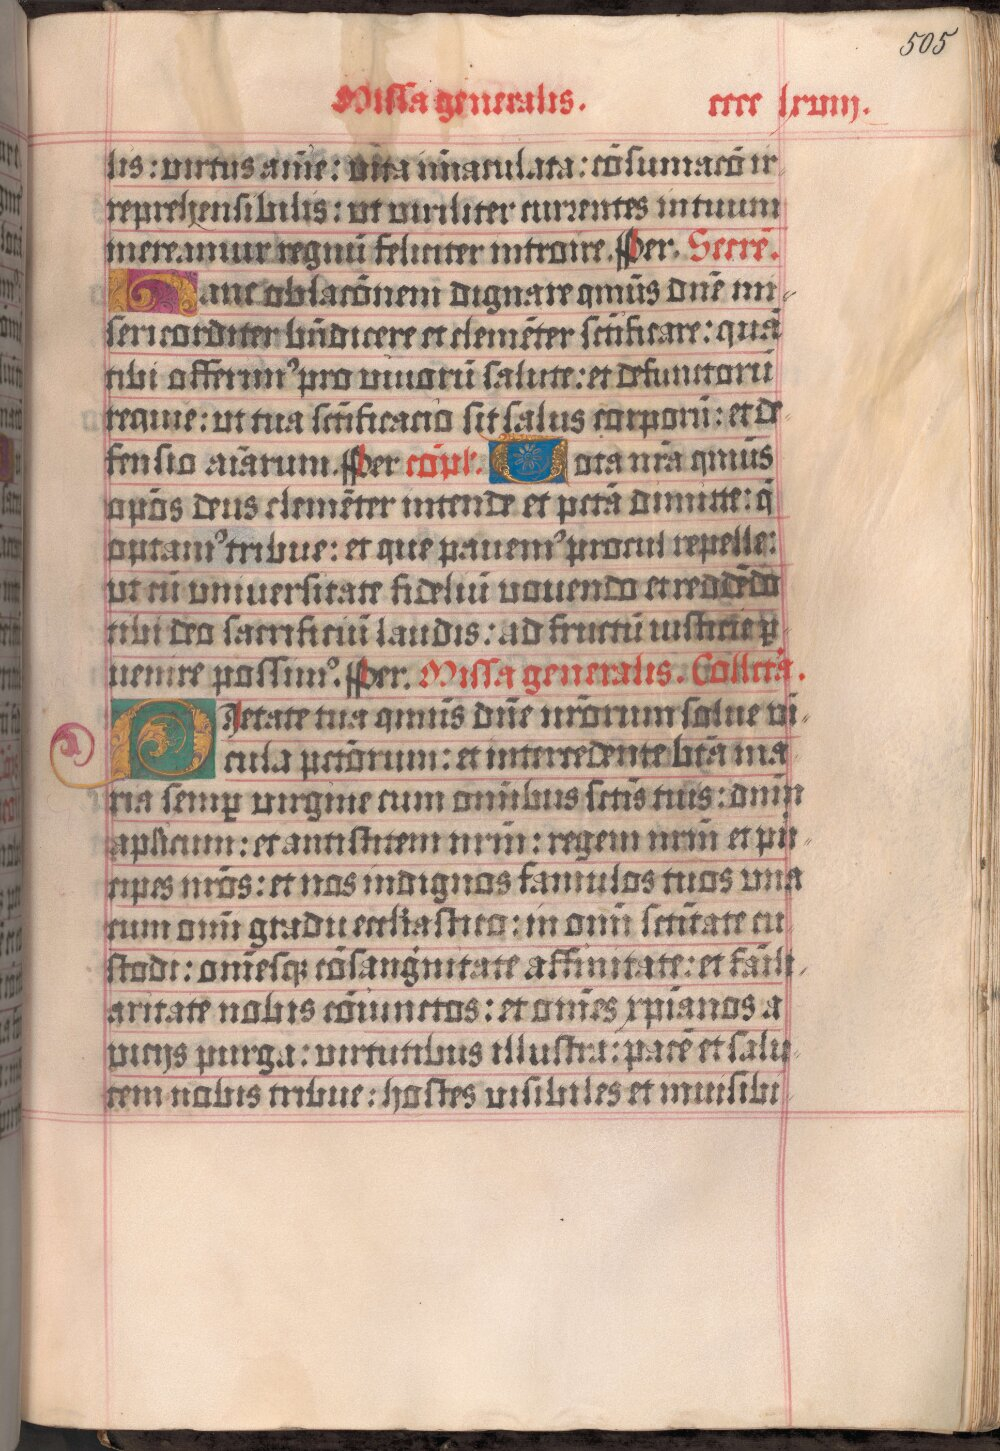 505
Missa generalis. cccc lxviij.
lis: virtus aīe: vita īmaculata: cōsumacō ir
reprehensibilis: vt viriliter currentes in tuum
mereamur regnū feliciter introire. Per. Secrē.
Hanc oblacōnem dignare qm̄us dn̄e mi-
sericorditer bn̄dicere et clemēter sc̄tificare: quā
tibi offerim⁹ pro viuorū salute: et defunctorū
requie: vt tua sc̄tificacio sit salus corporū: et de-
fensio aīarum. Per cōpl'. Vota nr̄a qm̄us
opōs deus clemēter intende et pctā dimitte: q̄
optam⁹ tribue: et que pauem⁹ procul repelle:
vt cū vniuersitate fideliū vouendo et reddēdo
tibi deo sacrificiū laudis: ad fructū iusticie p̱-
uenire possim⁹. Per. Missa generalis. Collcta.
Pietate tua qm̄us dn̄e nr̄orum solue vi-
cula pctōrum: et intercedente btā ma
ria semp̱ virgine cum om̄ibus sctīs tuis: dnm̄
aplicum: et antistitem nrm̄: regem nrm̄ et pri-
cipes nrōs: et nos indignos famulos tuos vna
cum om̄i gradu eccl̄iastico: in om̄i sctītate cu
stodi: om̄esqꝫ cōsang'nitate affinitate: et fāili-
aritate nobis cōiunctos: et om̄es xp̄ianos a
vicijs purga: virtutibus illustra: pacē et salu-
tem nobis tribue: hostes visibiles et inuisibi